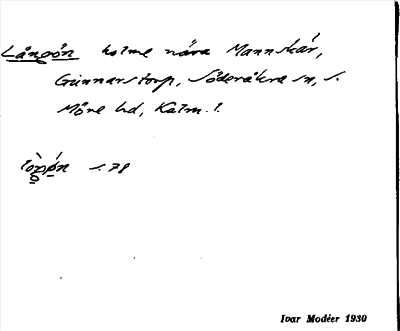 Långön holme nära Mannskär,
Gunnarstorp, Söderåkra sn, S.
Möre hd, Kalm. l.
s. 78
Ivar Modéer 1930